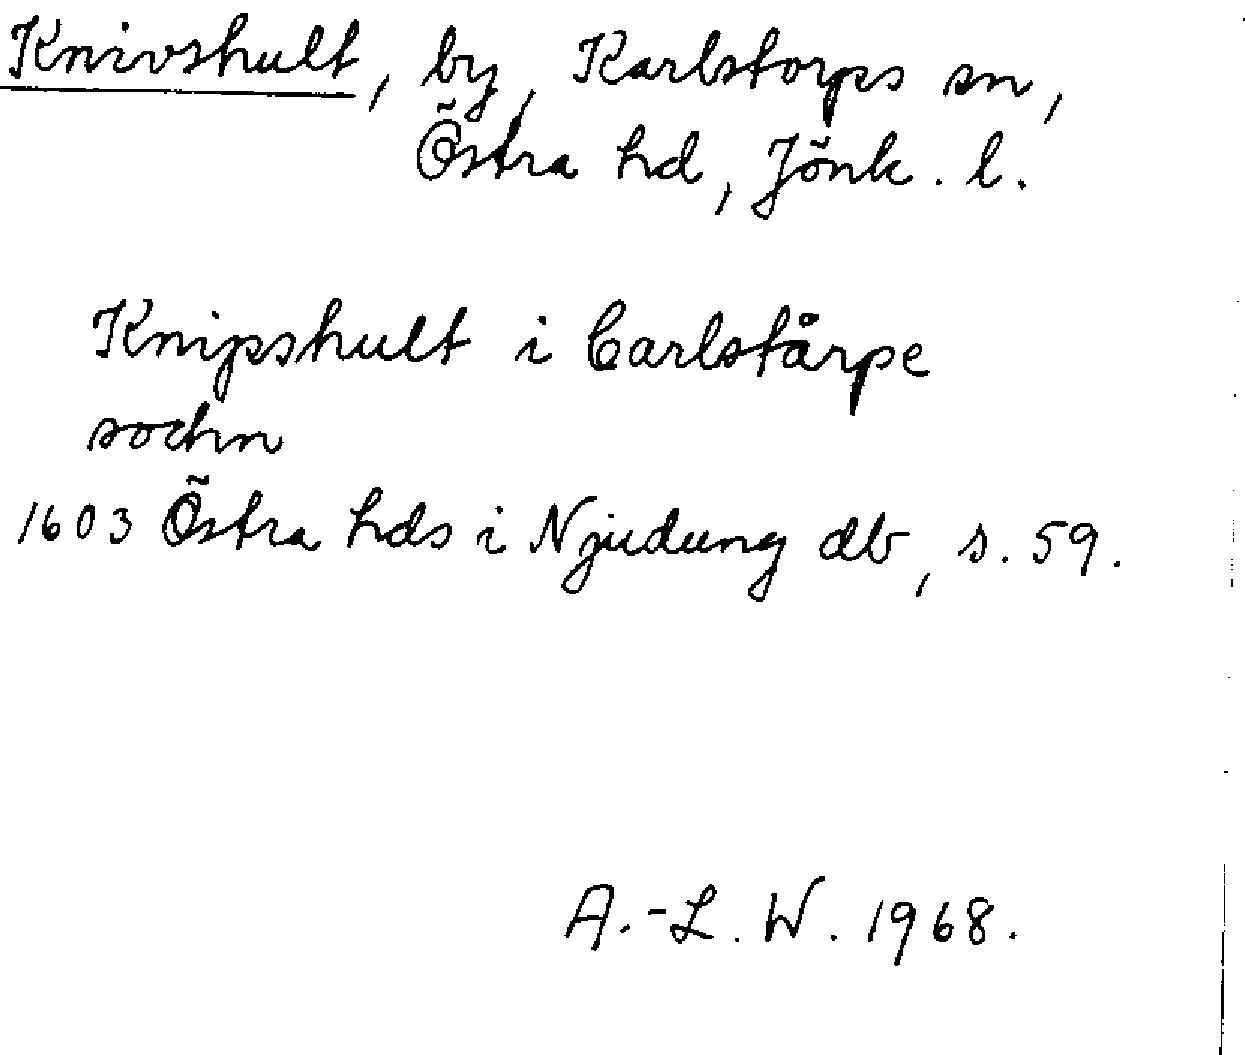 Knivshult, by, Karlstorps sn,
Östra hd, Jönk. l.
Knipshult i Carlstårpe
sochn
1603 Östra hds i Njudung db, s. 59.
A.-L. W. 1968.